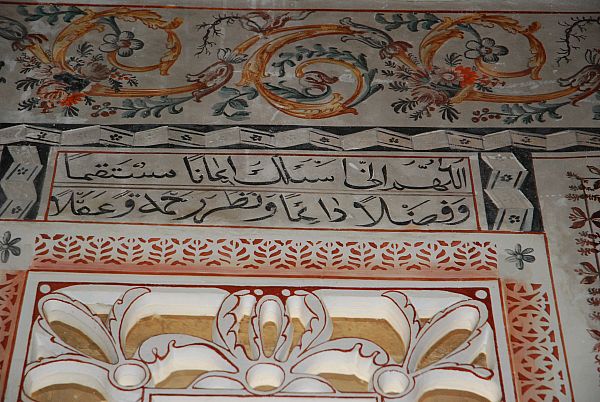 اللهم انى سئلك ايمانا مستقيما
وفضلا دائما ونظر رحمة وعقلا